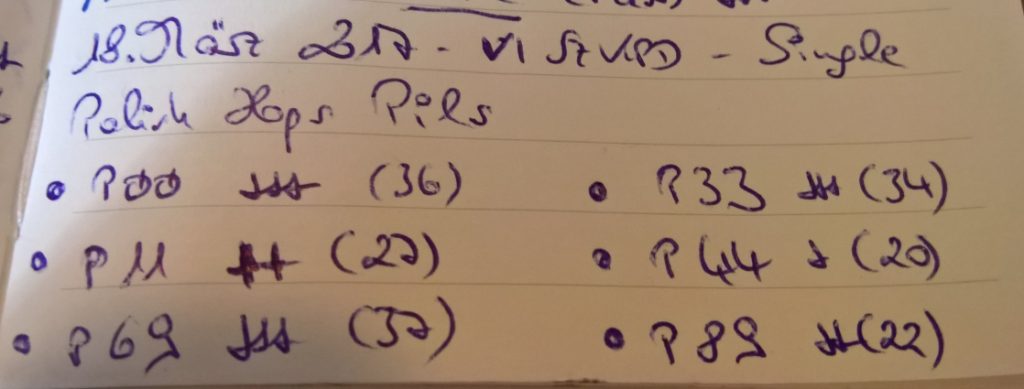 18. März 2017 - VI SzVPD - Single
Polish Hops Pils
• P00 +++ (36) • P33 +++ (34)
• P11 ++ (27) • P44 + (20)
• P69 +++ (37) • P89 ++ (22)